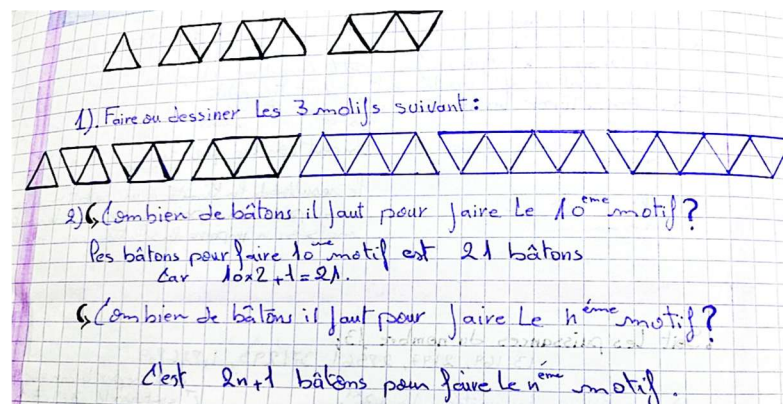 1). Faire ou dessiner Les 3 motifs suivant :
2) Combien de bâtons il faut pour faire Le 10ème motif ?
Pes bâtons pour faire 10ème motif est 21 bâtons
Car 10x2+1=21.
Combien de bâtons il faut pour faire Le nème motif ?
C'est 2n+1 bâtons pour faire Le nème motif.